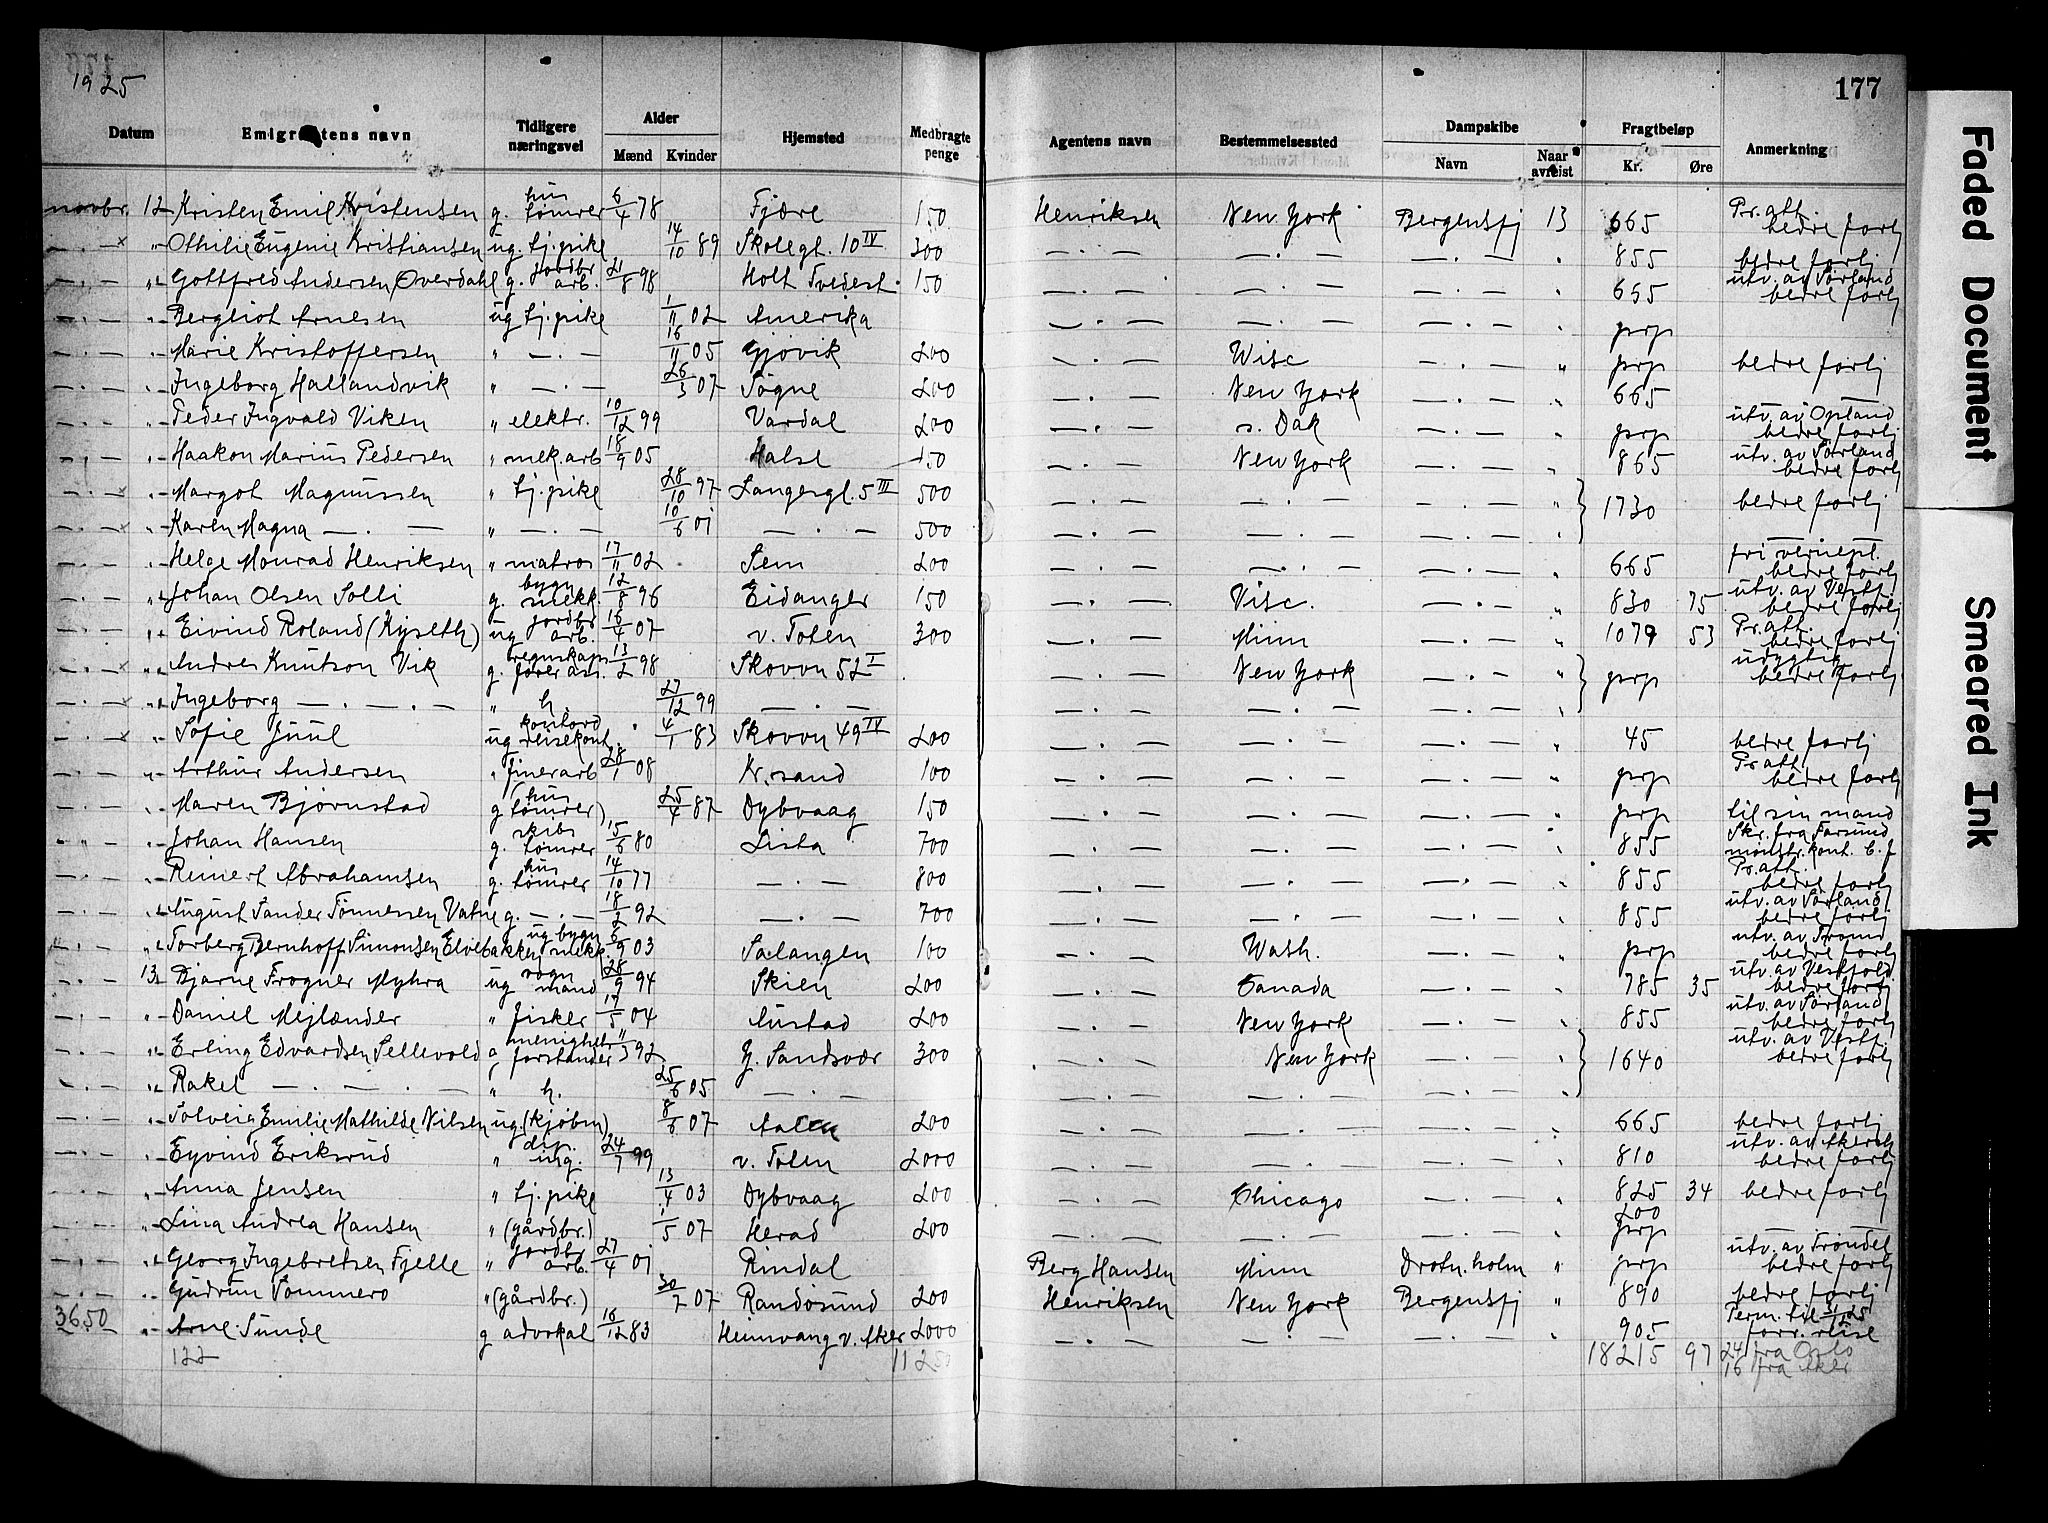 1925
177
Datum Emigrantens navn Tidligere næringsvei Alder Mænd Kvinder Hjemsted Medbragte penge Agentens navn Bestemmelsessted Dampskibe Navn Naar avreist Fragtbeløp Kr. Øre Anmerkning
novbr. 12 Kristen Emil Kristensen g. hustømrer 6/4 78 Fjære 150 Henriksen New York Bergensfj 13 665 Pr. att. bedre forhj
— . — x " Othilie Eugenie Kristiansen ug. tj. pike 14/10 89 Skolegt. 10 IV 300 — . — — . — — . — " 855 bedre forhj
— . — " Gottfred Andersen Øverdahl g. jordbr. arb. 21/8 98 Holt Tvedest. 150 — . — — . — — . — " 665 utv. av Sørland bedre forhj
— . — " Bergliot Arnesen ug tj. pike 1/11 02 Amerika — . — — . — — . — " prp
— . — " Marie Kristoffersen " — . — 16/11 05 Gjøvik 200 — . — Wisc — . — " prp bedre forhj
— . — " Ingeborg Hallandvik " — . — 26/3 07 Søgne 200 — . — New York — . — " 665 — . —
— . — " Peder Ingvald Viken " elektr. 10/12 99 Vardal 200 — . — s. Dak — . — " prp utv. av Opland bedre forhj
— . — " Haakon Marius Pedersen " mek. arb 18/9 05 Halse 150 — . — New York — . — " 865 utv. av Sørland bedre forhj
— . — x " Margot Magnussen " tj. pike 28/10 97 Langesgt. 5 III 500 — . — — . — — . — " 1730 bedre forhj
— . — x " Karen Magna — . — " — . — 10/6 01 — . — 500 — . — — . — — . — " — . —
— . — " Helge Monrad Henriksen " matros 17/11 02 Sem 200 — . — — . — — . — " 665 fri vernepl. bedre forhj
— . — " Johan Olsen Solli g. bygn snekk. 12/8 96 Eidanger 150 — . — Visc. — . — " 830 75 utv. av Vestf. bedre forhj
— . — " Eivind Roland (Kyseth) ug jordbr arb. 16/4 07 v. Toten 300 — . — Minn — . — " 1079 53 Pr. att. bedre forhj
— . — x " Andres Knutson Vik g. regnskaps fører ass. 13/2 98 Skovvn 52 I — . — New York — . — " prp udygtig bedre forhj
— . — x " Ingeborg — . — . — " h. 27/12 99 — . — — . — — . — — . — "
— . — x " Sofie Juul ug kontord reisekont. 4/1 83 Skovvn 49 IV 200 — . — — . — — . — " 45 bedre forhj
— . — " Arthur Andersen " finerarb 28/1 08 Kr.sand 100 — . — — . — — . — " prp Pr att. bedre forhj
— . — " Maren Bjørnstad g (hus tømrer) 25/4 87 Dybvaag 150 — . — — . — — . — " prp til sin mand
— . — " Johan Hansen g. skibs tømrer 15/6 80 Lista 700 — . — — . — — . — " 855 Skr. fra Farsund mønstr. kont.
— . — " Reinert Abrahamsen g. hus tømrer 14/10 77 — . — 800 — . — — . — — . — " 855 Pr. att. bedre forhj
— . — " August Sander Tønnessen Vatne g. — . — 18/2 92 — . — 700 — . — — . — — . — " 855 utv. av Sørland bedre forhj
— . — " Torberg Bernhoff Simonsen Elvebakken ug bygn snekk. 6/9 03 Salangen 100 — . — Wash. — . — " prp utv. av Tromsø bedre forhj
— . — 13 Bjarne Frogner Myhra ug vogn mand 28/9 94 Skien 200 — . — Canada — . — " 785 35 utv. av Vestfold bedre forhj
— . — " Daniel Mejlænder " fisker 17/5 04 Austad 200 — . — New York — . — " 855 utv. av Sørland bedre forhj
— . — " Erling Edvardsen Sellevold g menighets forstander 11/3 92 Y. Sandsvær 300 — . — New York — . — " 1640 utv. av Vestf. bedre forhj
— . — " Rakel — . — . — " h. 25/6 05 — . — — . — — . — "
— . — " Solveig Emilie Mathilde Nilsen ug. (kjøbm) 8/6 07 200 — . — — . — — . — " 665 bedre forhj
— . — " Eyvind Eriksrud " dip. ing. 24/7 99 v. Toten 2000 — . — — . — — . — " 810 utv. av Akersh bedre forhj
— . — " Anna Jensen " tj. pike 13/4 03 Dybvaag 200 — . — Chicago — . — " 825 34 bedre forhj
— . — " Lina Andrea Hansen " (gårdbr.) 1/5 07 Herad 200 — . — — . — — . — " 200 prp — . —
— . — " Georg Ingebretsen Fjelle " jordbr arb. 27/4 01 Rindal Berg Hansen Minn Drotn.holm " prp utv. av Trøndel bedre forhj
— . — " Gudrun Tømmerø " (gårdbr.) 30/7 07 Randøsund 200 Henriksen New York Bergensfj " 890 bedre forhj
3650 " Arne Sunde g advokat 16/12 83 Heimvang v. Aker 2000 — . — — . — — . — " 905 Perm. til forr. reise
122 11250 18215 97 24 fra Oslo
16 fra Aker
Faded Document
Smeared Ink